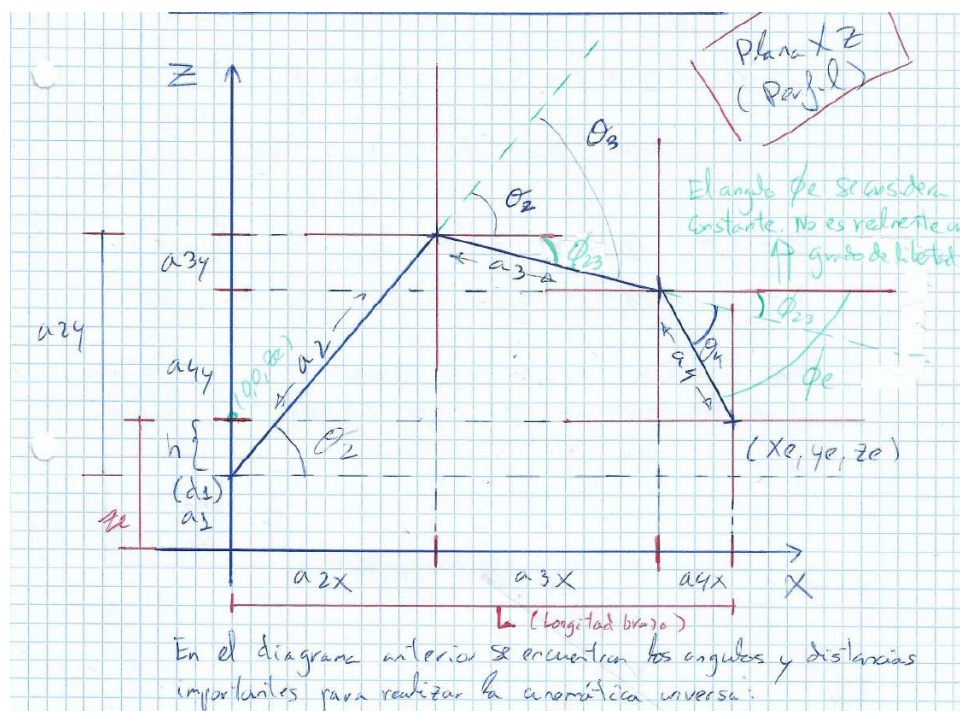 Plano XZ
(Perfil)
Z
θ3
θ2
El angulo ϕe se considera
constante. No es realmente un
grado de libertad
a3y
ϕ23
a3
a2y
a2
a4y
(0,0,ze)
ϕ23
θ4
a4
ϕe
h
θ2
(xe, ye, ze)
(d1)
a1
ze
a2x
a3x
a4x
X
L (Longitud brazo)
En el diagrama anterior se encuentran los angulos y distancias
importantes para realizar la cinemática inversa: